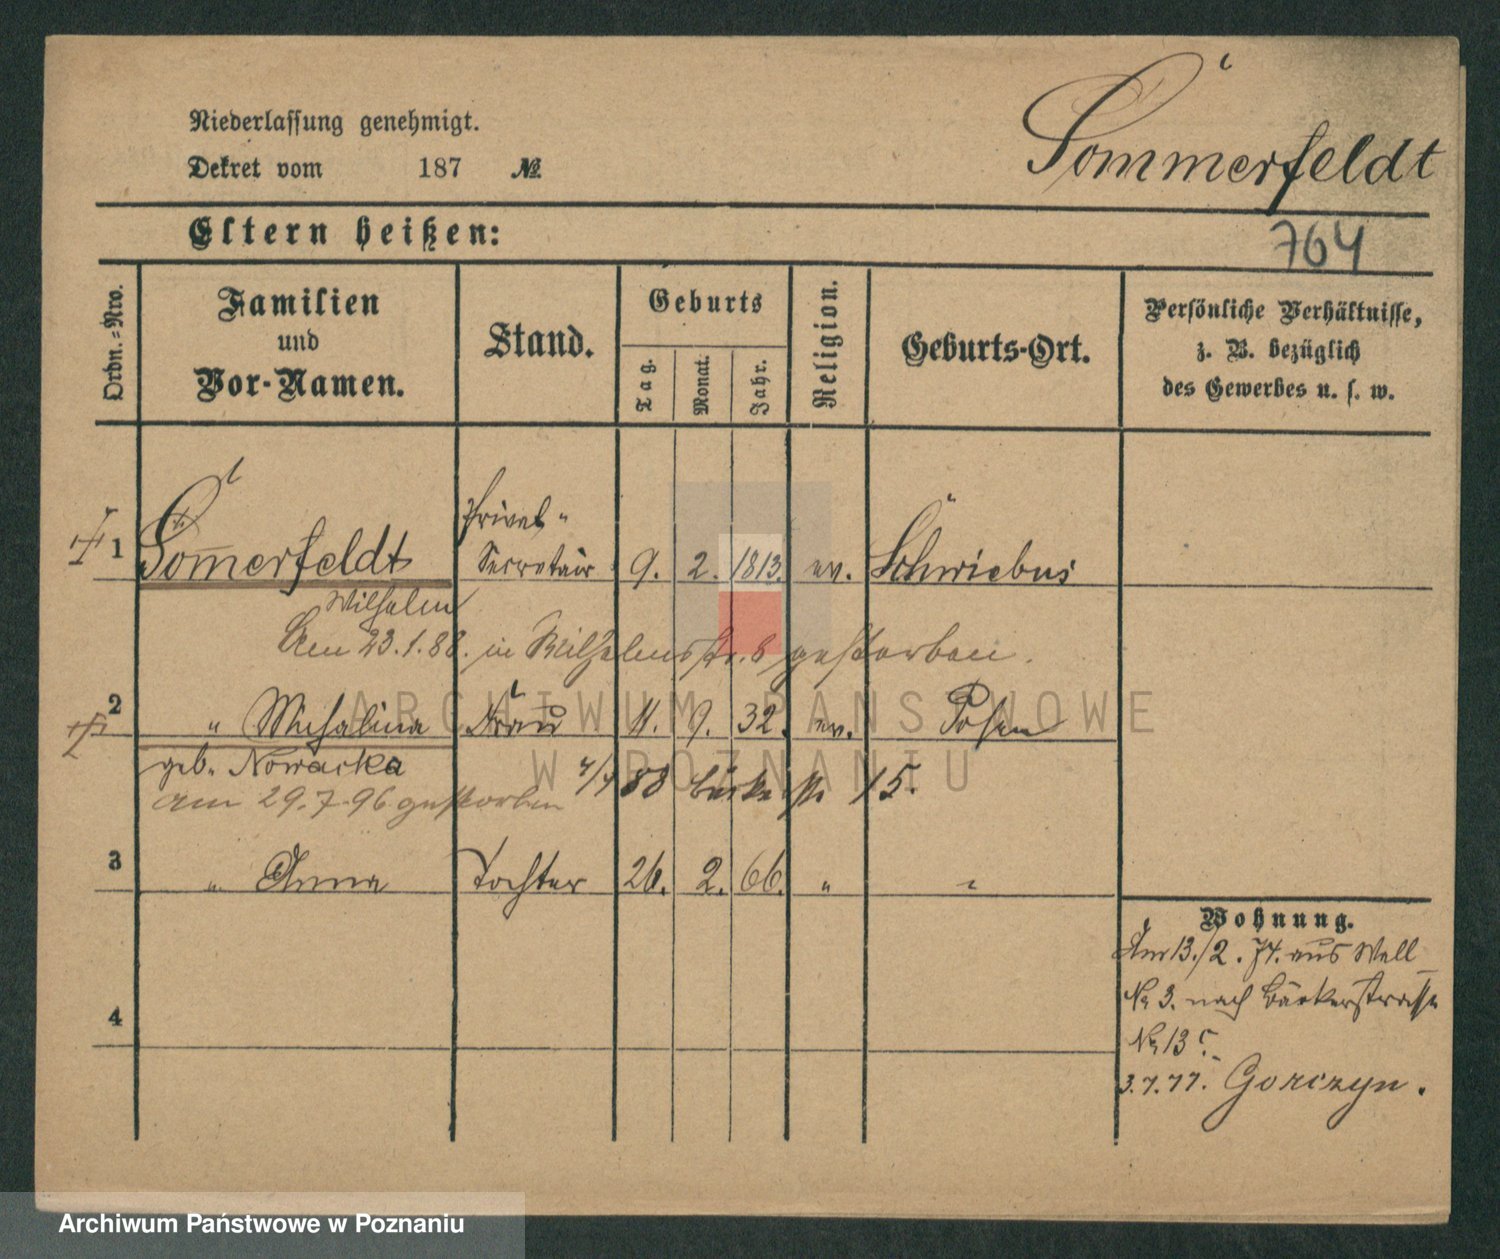 Niederlassung genehmigt.
Dekret vom 187 №
Sommerfeldt
Eltern heißen:
764
Ordn.-Nro.
Familien
und
Vor-Namen.
Stand.
Geburts
Tag.
Monat.
Jahr.
Religion.
Geburts-Ort.
Persönliche Verhältnisse,
z. B. bezüglich
des Gewerbes u. s. w.
1 Som̅erfeldt Privat-Secretair 9. 2. 1813. ev. Schwiebus
Wilhelm
Am 23.1.88. in Wilhelmsstr. 6 gestorben.
2 " Michalina Frau 11. 9. 32. ev. Posen
geb. Nowacka 4/4 88 Bäcker str 15.
am 29.7.96 gestorben
3 " Anna Tochter 26. 2. 66. " "
Wohnung.
Am 13./2. 74. aus Wall
№ 3. nach Bäckerstrasse
№ 13
4
3.7.77. Gorczyn.
ARCHIWUM PAŃSTWOWE
W POZNANIU
Archiwum Państwowe w Poznaniu